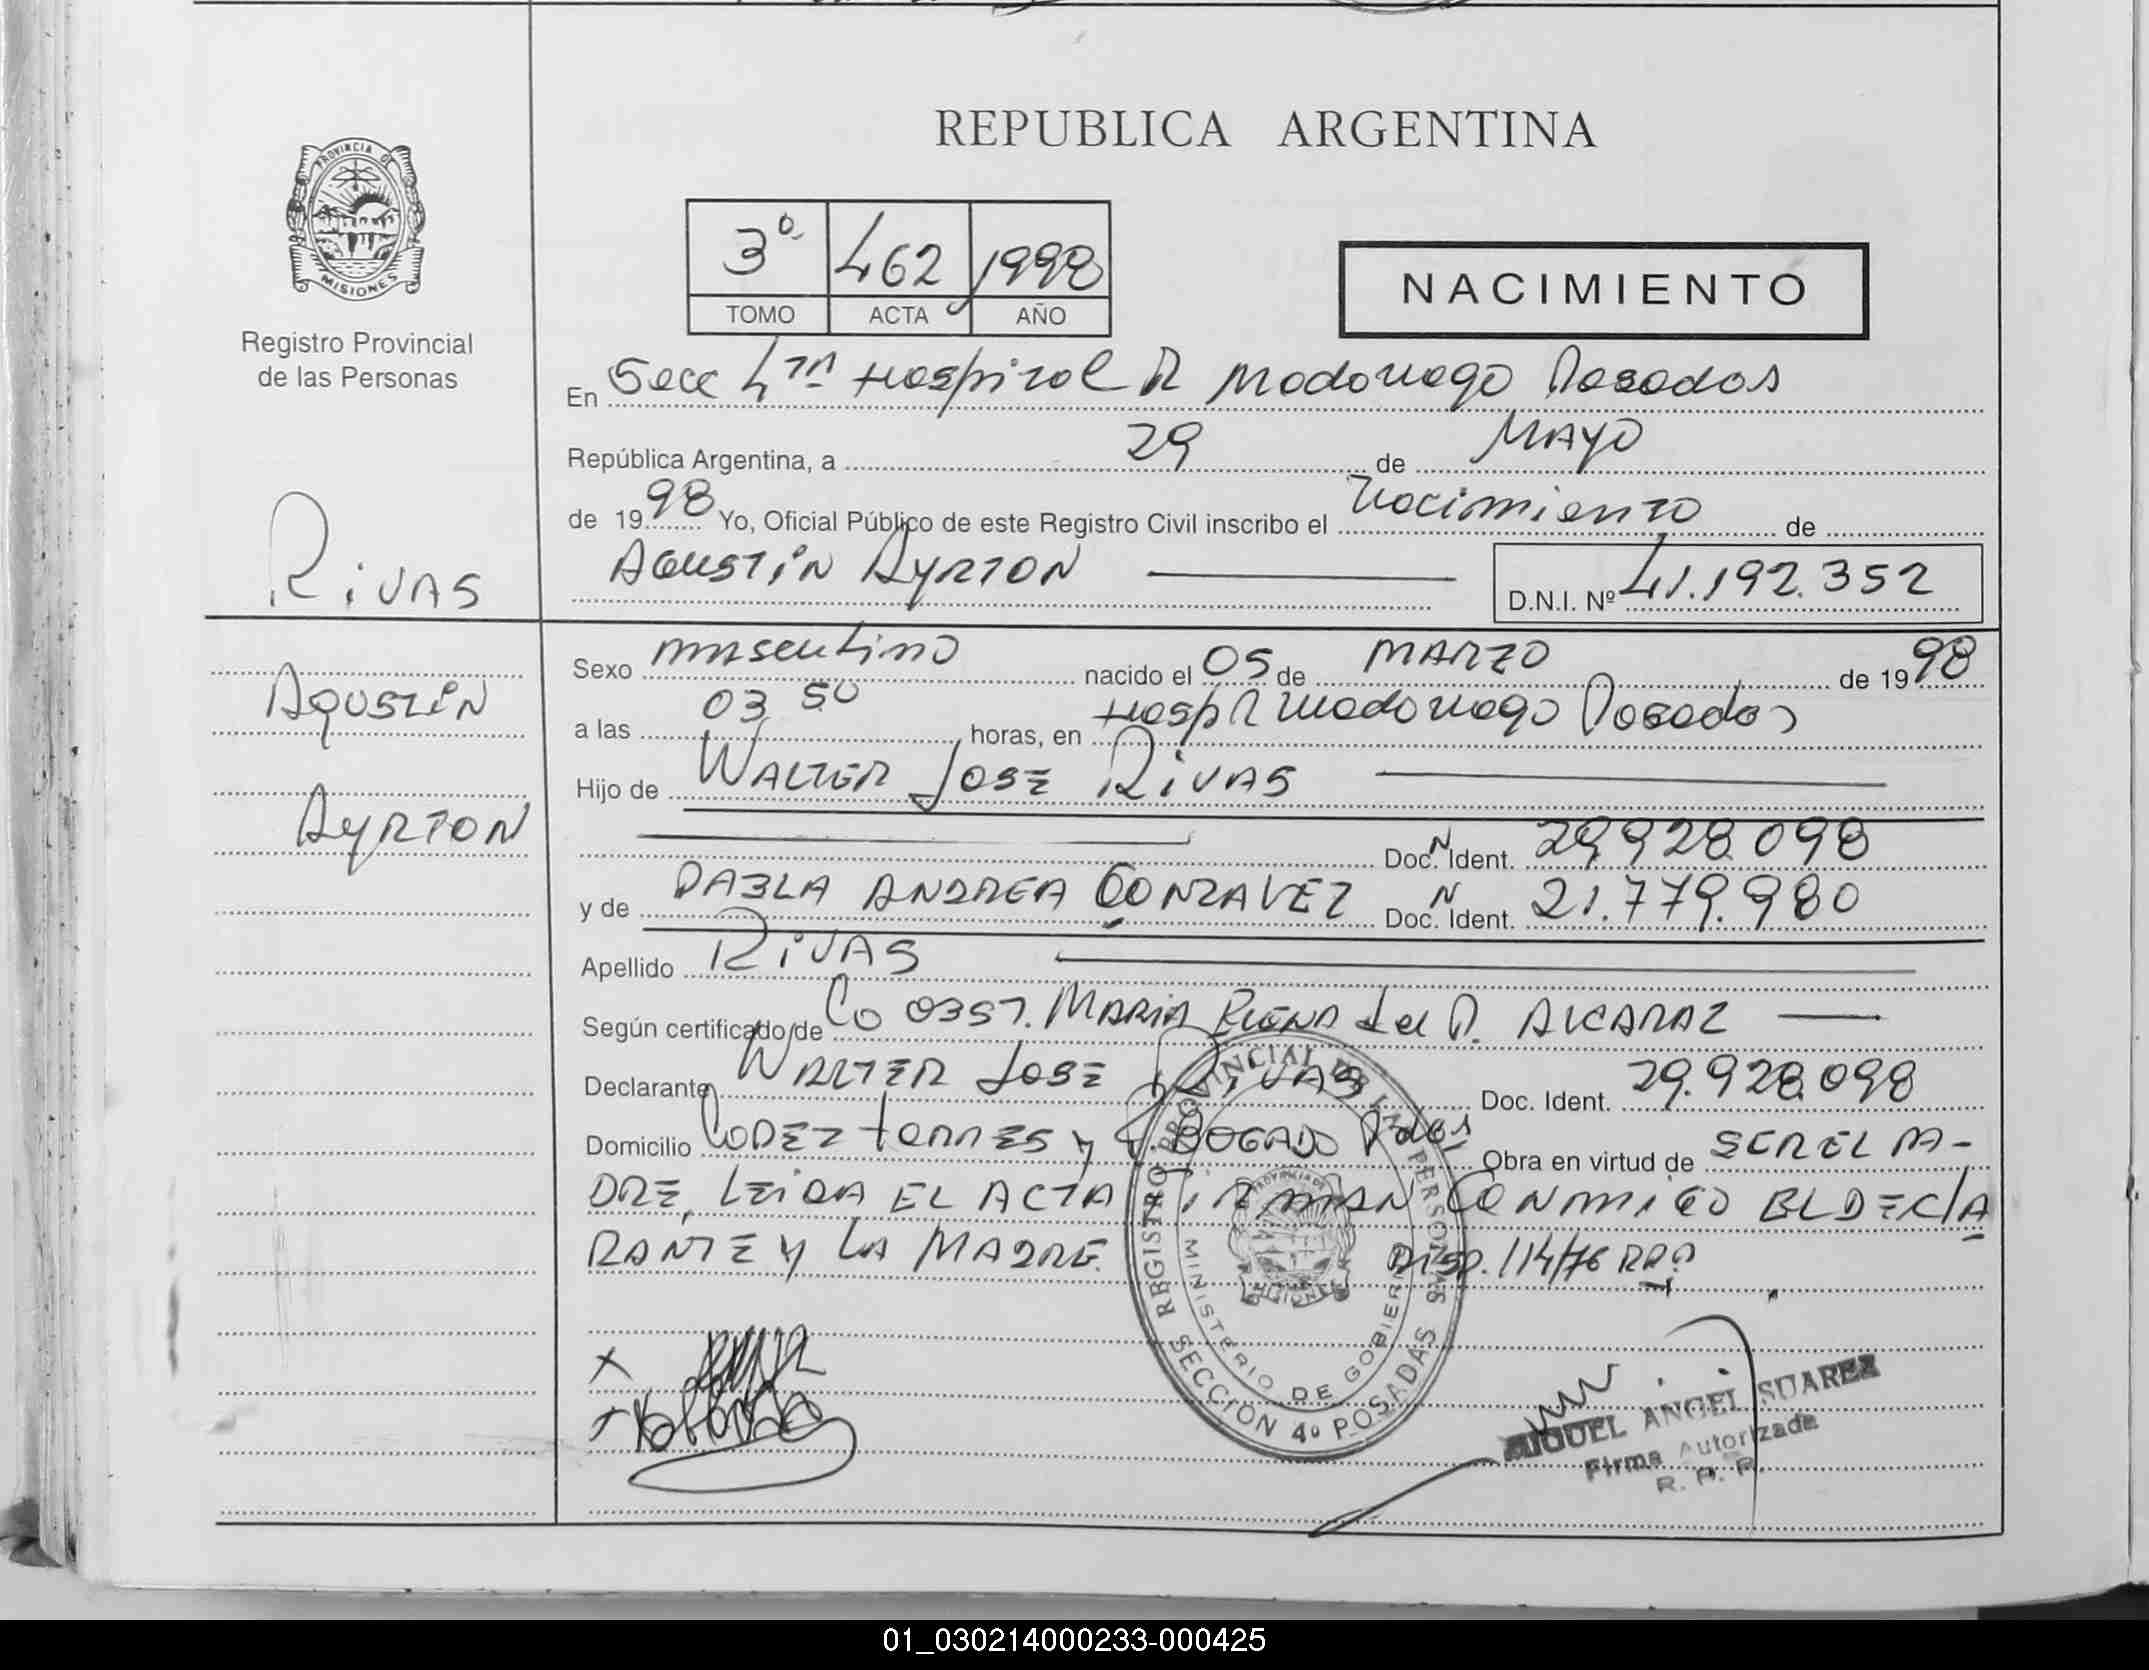 REPUBLICA ARGENTINA
PROVINCIA DE
MISIONES
Registro Provincial
de las Personas
3º 462 1998
TOMO ACTA AÑO
NACIMIENTO
En Secc 4ta Hospital R Madariaga Posadas
República Argentina, a 29 de MAYO
de 1998 Yo, Oficial Público de este Registro Civil inscribo el Nacimiento de
AGUSTIN AYRTON
D.N.I. Nº 41.192.352
RIVAS
AGUSTIN
AYRTON
Sexo masculino nacido el 05 de MARZO de 1998
a las 03,50 horas, en Hosp R Madariaga Posadas
Hijo de WALTER JOSE RIVAS
Doc. N Ident. 29.928.098
y de ANDREA GONZALEZ Doc. N Ident. 21.779.980
Apellido RIVAS
Según certificado de Co OBST. MARIA ELENA del R. ALCARAZ
Declarante WALTER JOSE RIVAS Doc. Ident. 29.928.098
Domicilio LOPEZ TORRES y BOGADO Pdas Obra en virtud de SER EL PA-
DRE, LEIDA EL ACTA FIRMAN CONMIGO EL DECLA
RANTE y LA MADRE. DISP. 114/76 RPP
REGISTRO PROVINCIAL DE LAS PERSONAS
MINISTERIO DE GOBIERNO
PROVINCIA DE
MISIONES
SECCION 4º POSADAS
MIGUEL ANGEL SUAREZ
Firma Autorizada
R. P. P.
01_030214000233-000425